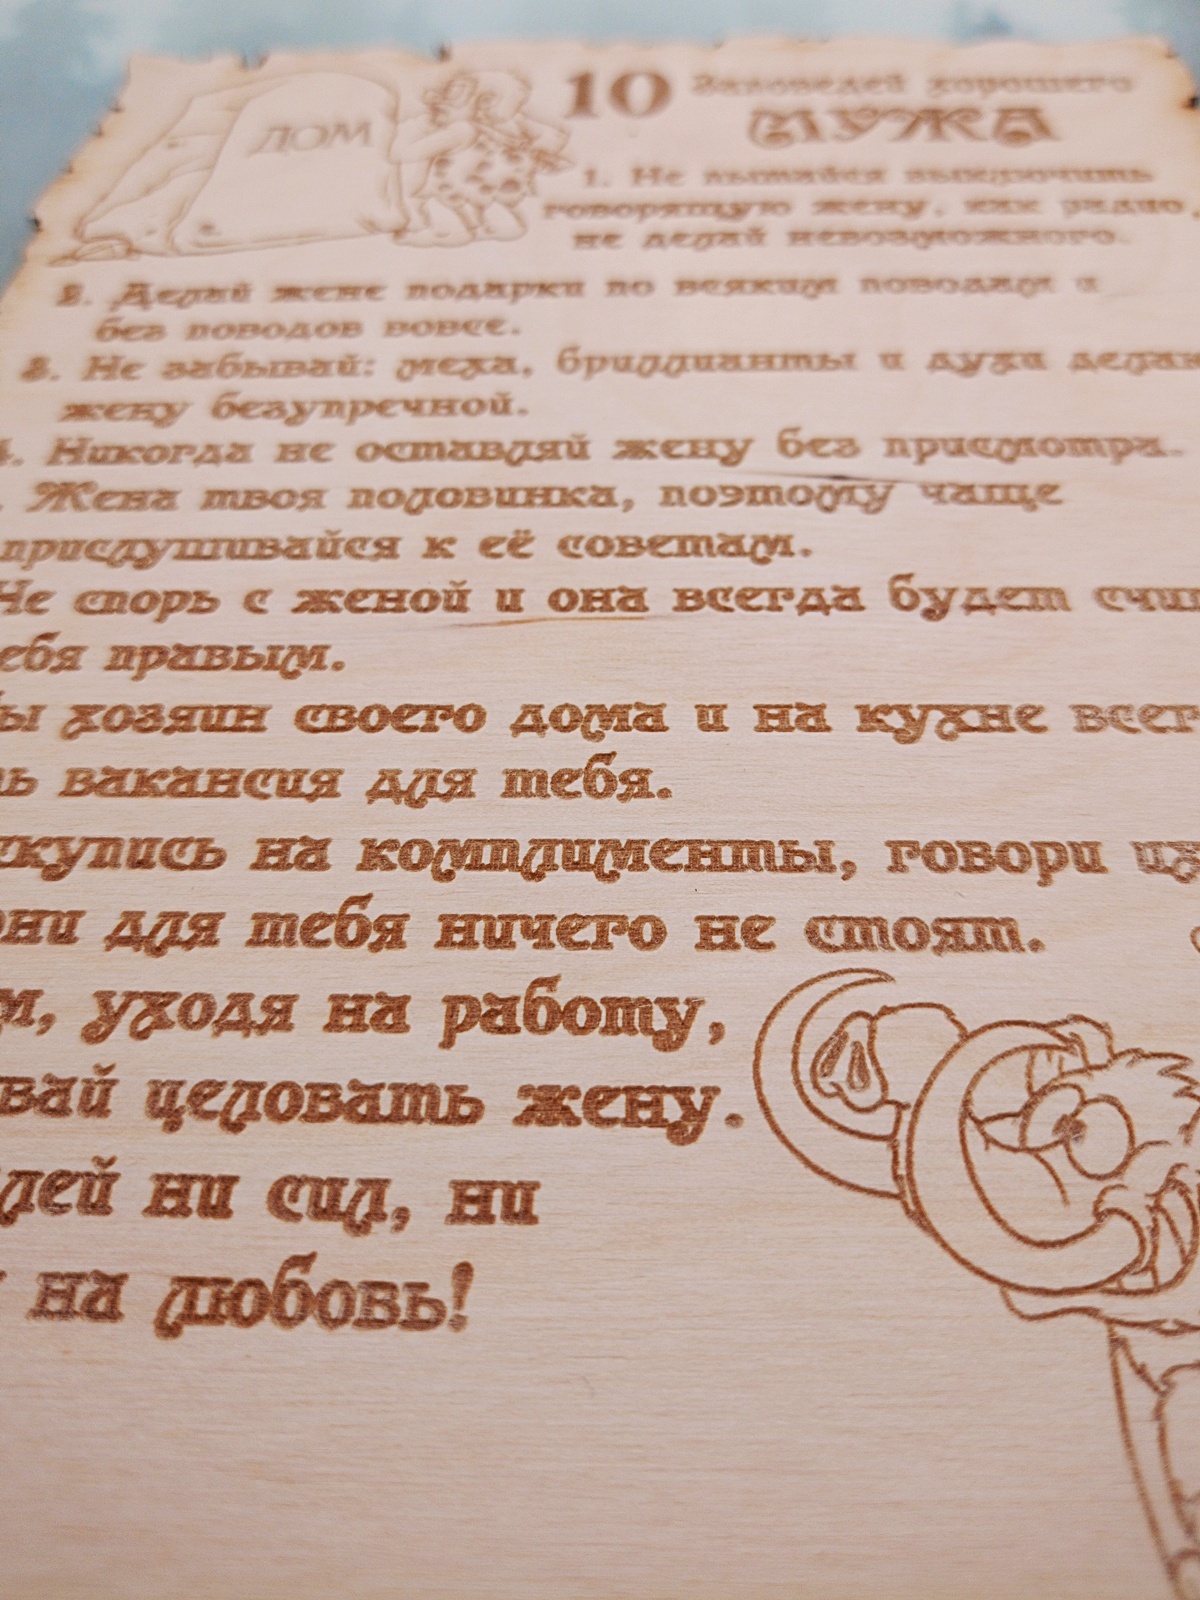 ДОМ
10 Заповедей хорошего
МУЖА
1. Не пытайся выключить
говорящую жену, как радио,
не делай невозможного.
2. Делай жене подарки по всяким поводам и
без поводов вовсе.
3. Не забывай: меха, бриллианты и духи делаю
жену безупречной.
4. Никогда не оставляй жену без присмотра.
. Жена твоя половинка, поэтому чаще
прислушивайся к её советам.
Не спорь с женой и она всегда будет счит
ебя правым.
ы хозяин своего дома и на кухне всег
ь вакансия для тебя.
скупись на комплименты, говори их
они для тебя ничего не стоят.
м, уходя на работу,
вай целовать жену.
лей ни сил, ни
на любовь!